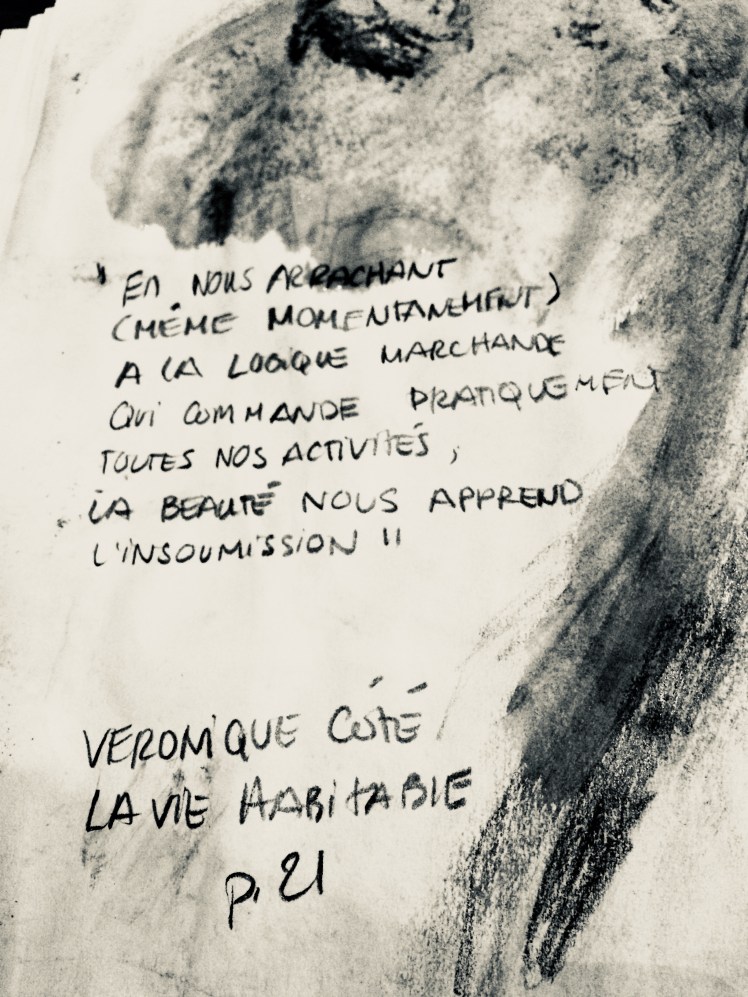 " EN NOUS ARRACHANT
(MÊME MOMENTANEMENT)
A LA LOGIQUE MARCHANDE
QUI COMMANDE PRATIQUEMENT
TOUTES NOS ACTIVITÉS,
LA BEAUTÉ NOUS APPREND
L'INSOUMISSION "
VERONIQUE CÔTÉ
LA VIE HABITABLE
p. 21